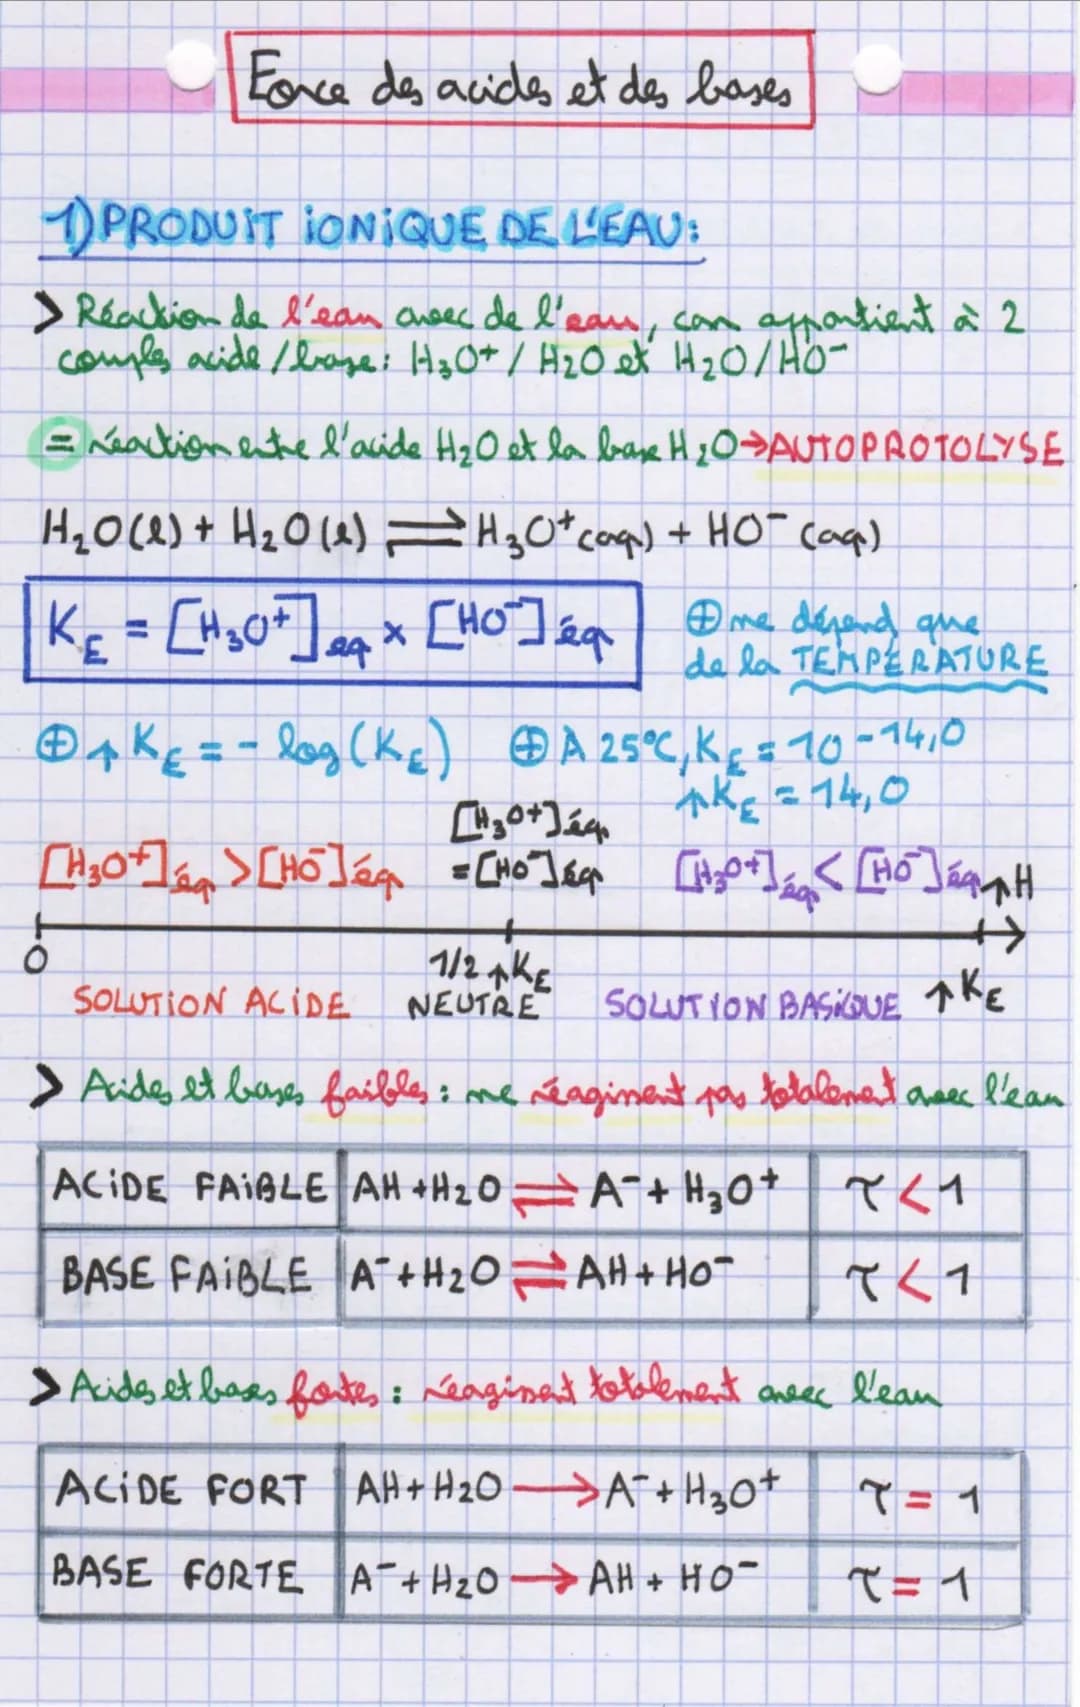 Force des acides et des bases
1) PRODUIT iONiQUE DE L'EAU:
> Réaction de l'eau avec de l'eau, car appartient à 2
couples acide/base: H₃O⁺ / H₂O et H₂O/HO⁻
= réaction entre l'acide H₂O et la base H₂O → AUTOPROTOLYSE
H₂O(l) + H₂O(l) ⇌ H₃O⁺(aq) + HO⁻(aq)
K_E = [H₃O⁺]eq × [HO⁻]éq
⊕ ne dépend que
de la TEMPÉRATURE
⊕ pK_E = - log(K_E) ⊕ A 25°C, K_E = 10⁻¹⁴,⁰
pK_E = 14,0
[H₃O⁺]éq > [HO⁻]éq
[H₃O⁺]éq
= [HO⁻]éq
[H₃O⁺]éq < [HO⁻]éq
pH
0
1/2 pK_E
pK_E
SOLUTiON ACiDE NEUTRE SOLUTiON BASiQUE
> Acides et bases faibles : ne réagissent pas totalement avec l'eau
ACiDE FAiBLE AH + H₂O ⇌ A⁻ + H₃O⁺ τ < 1
BASE FAiBLE A⁻ + H₂O ⇌ AH + HO⁻ τ < 1
> Acides et bases fortes : réagissent totalement avec l'eau
ACiDE FORT AH + H₂O → A⁻ + H₃O⁺ τ = 1
BASE FORTE A⁻ + H₂O → AH + HO⁻ τ = 1